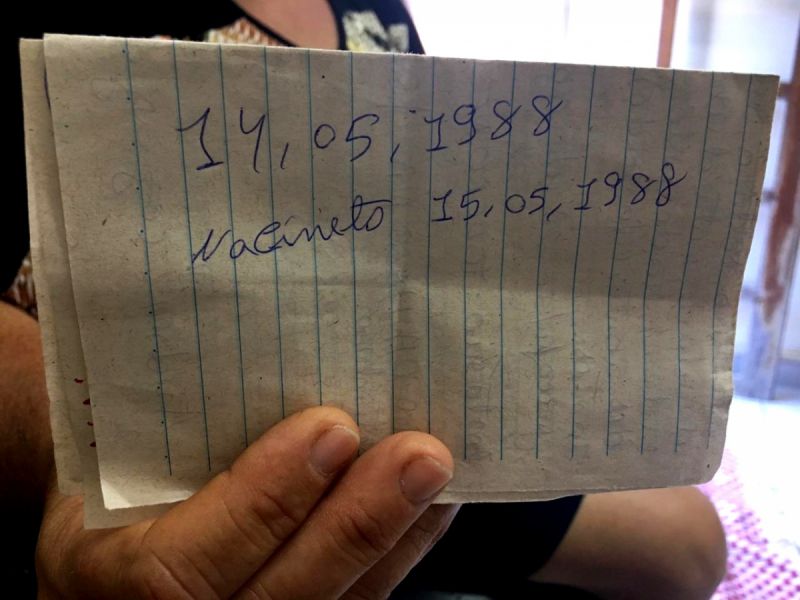 14,05,1988
Nacineto 15,05,1988